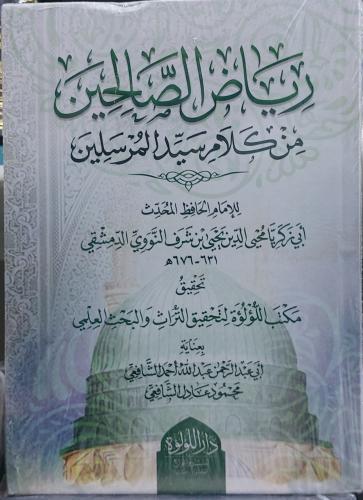 رياض الصالحين
من كلام سيد المرسلين
للإمام الحافظ المحدث
أبي زكريا محيي الدين يحيى بن شرف النووي الدمشقي
٦٣١-٦٧٦هـ
تحقيق
مكتب اللؤلؤة لتحقيق التراث والبحث العلمي
بعناية
أبي عبد الرحمن عبد الله أحمد الشافعي
محمود عادل الشافعي
دار اللؤلؤة